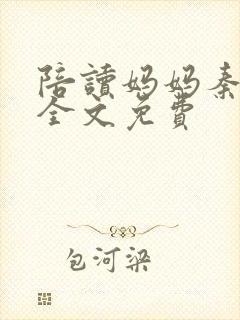 陪讀妈妈秦
全文免費
包河梁